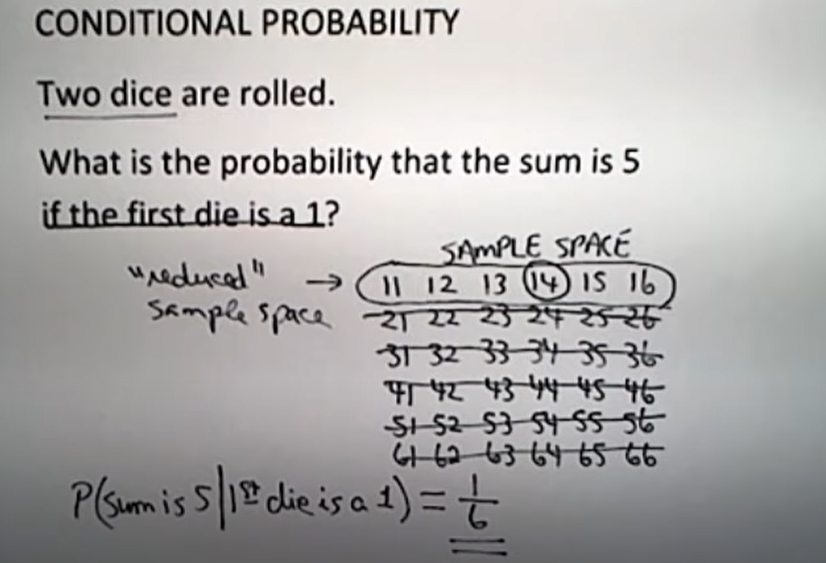 CONDITIONAL PROBABILITY
Two dice are rolled.
What is the probability that the sum is 5
if the first die is a 1?
SAMPLE SPACE
"reduced" → 11 12 13 14 15 16
sample space 21 22 23 24 25 26
31 32 33 34 35 36
41 42 43 44 45 46
51 52 53 54 55 56
61 62 63 64 65 66
P(sum is 5 | 1st die is a 1) = 1/6